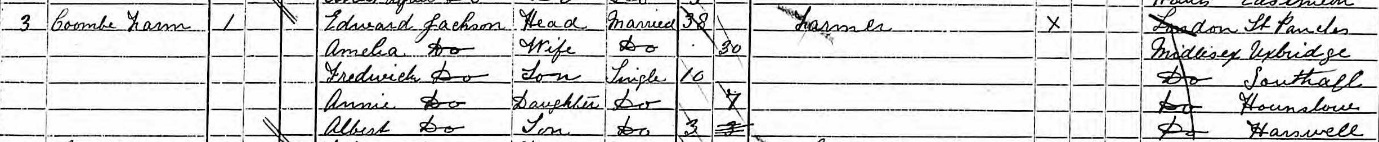 3 Coombe Farm 1 Edward Jackson Head Married 38 Farmer X London St Pancles
Amelia Do Wife Do 30 Middlesex Uxbridge
Fredwick Do Son Single 10 Do Southall
Annie Do Daughter Do 7 Do Hounslow
Albert Do Son Do 3 Do Harswell